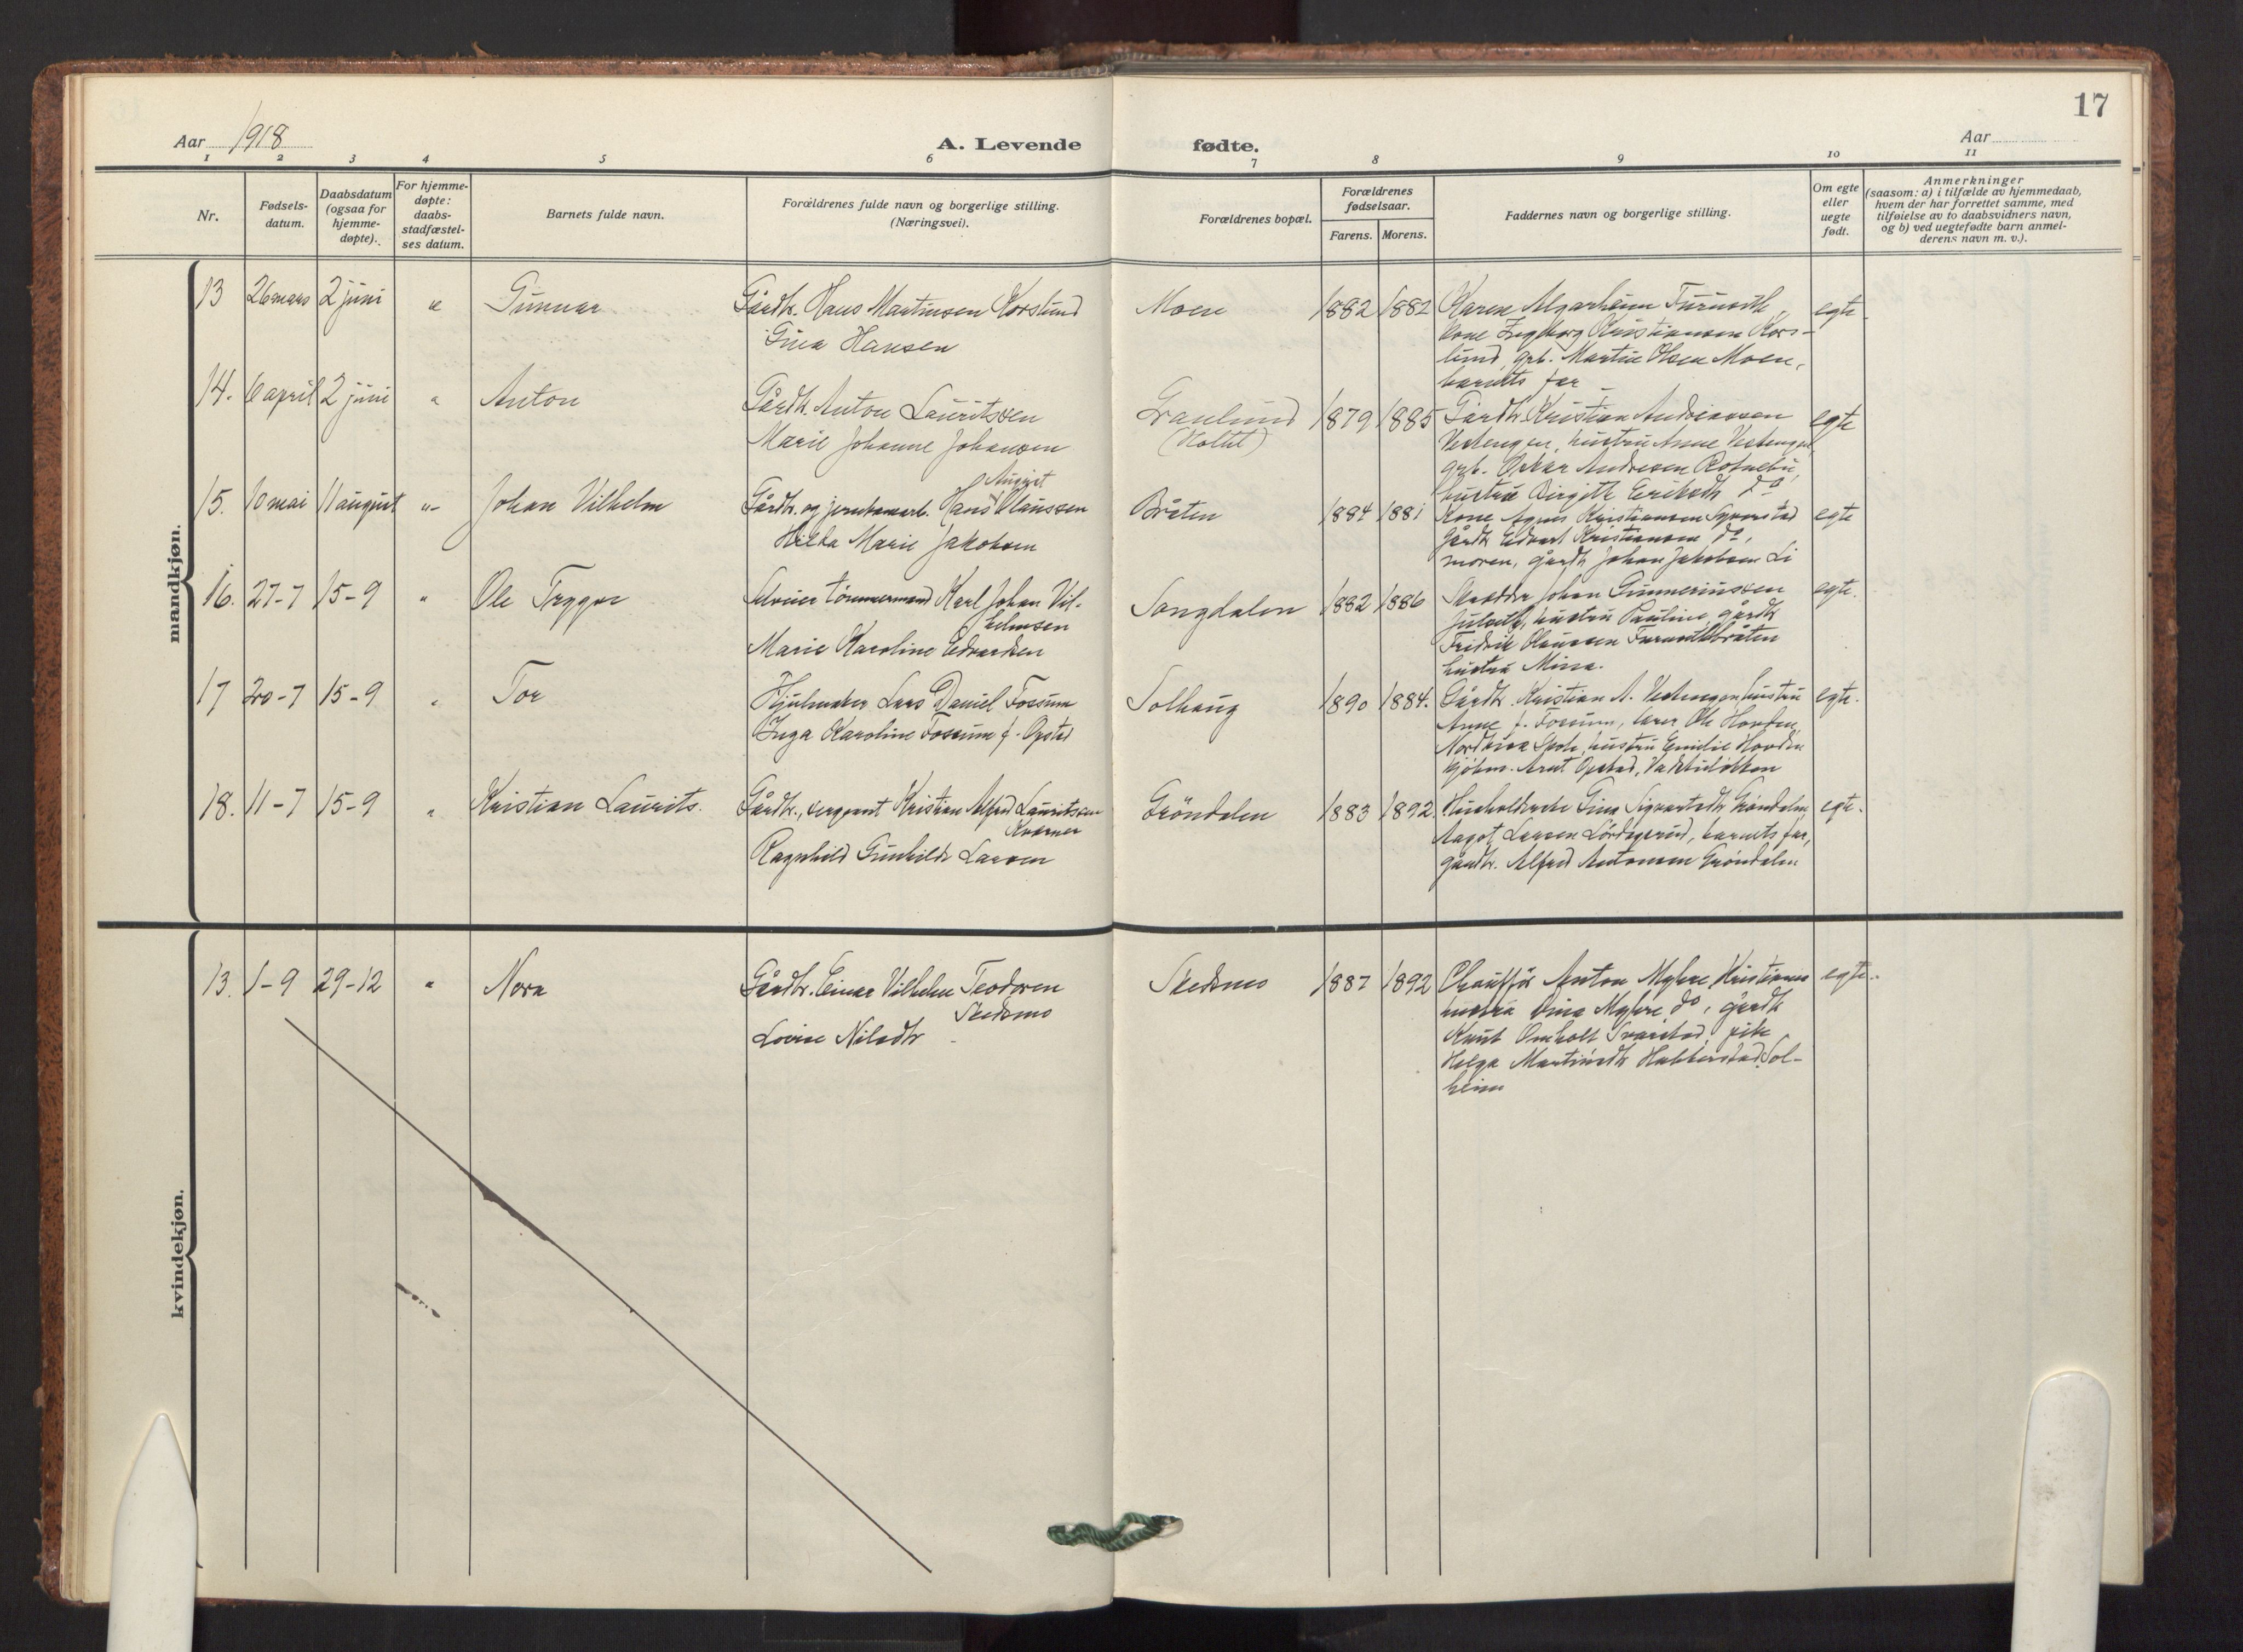 17
Aar 1918
A. Levende fødte.
Aar
1 2 3 4 5 6 7 8 9 10 11
Nr.
Fødsels-
datum.
Daabsdatum
(ogsaa for
hjemme-
døpte).
For hjemme-
døpte:
daabs-
stadfæstel-
ses datum.
Barnets fulde navn.
Forældrenes fulde navn og borgerlige stilling.
(Næringsvei).
Forældrenes bopæl.
Forældrenes
fødselsaar.
Farens. Morens.
Faddernes navn og borgerlige stilling.
Om egte
eller
uegte
født.
Anmerkninger
(saasom: a) i tilfælde av hjemmedaab,
hvem der har forrettet samme, med
tilføielse av to daabsvidners navn,
og b) ved uegtefødte barn anmel-
derens navn m. v.).
mandkjøn.
13 26 mars 2 juni " Gunnar
Gårdbr. Hans Martinsen Korslund
Gina Hansen
Moen 1882 1882
Karen Algarheim Furuseth,
kone Ingborg Kristiansen Kors-
lund, grb. Martin Olsen Moen,
barnets far
egte
14. 6 april 2 juni " Anton
Gårdbr. Anton Lauritsen
Marie Johanne Johansen
Granlund
(Holtet)
1879 1885
Gårdbr. Kristian Andreassen
Vestengen, hustru Anne Vestengen,
grb. Oskar Andresen
hustru Birgitte Eriksdtr do
egte
15. 10 mai 11 august "- Johan Vilhelm
August
Gårdbr. og jernbanearb. Hans Klaussen
Hilda Marie Jakobsen
Bråten 1884 1881
Kone Agnes Kristiansen Syverstad
gårdbr Edvart Kristiansen do,
moren, gårdb Johan Jakobsen Li
egte
16. 27-7 15-9 " Ole Trygve
Selveier tømmermand Karl Johan Vil-
helmsen
Marie Karoline Edvardsen
Sangdalen 1882 1886
Skrædder Johan Gunneriussen
Julseth, hustru Pauline, gårdb
Fridrik Olaussen Furusethbråten
hustru Mina.
egte.
17 20-7 15-9 " Tor
Hjulmaker Lars Daniel Fossum
Inga Karoline Fossum f. Opstad
Solhaug 1890 1884.
Gårdbr. Kristian A. Vestengen, hustru
Anne f. Fossum, lærer Ole Hovden
Nordkisa Skole, hustru Emilie Hovden
kjøbm. Arnt Opstad,
egte.
18. 11-7 15-9 " Kristian Laurits.
Gårdbr., sergeant Kristian Alfred Lauritssen
Kværner
Ragnhild Gunhilde Larsen
Gröndalen 1883 1892.
Husholderske Gina Sigvartsdtr Gröndalen
Aagot Larsen Lördagsrud, barnets far,
gårdbr. Alfred Antonsen Gröndalen
egte.
kvindekjøn.
13. 1-9 29-12 " Nora
Gårdbr. Einar Vilhelm Teodorsen
Skedsmo
Lovise Nilsdtr
Skedsmo 1887 1892
Chauffør Anton Myhre, Kristiania
hustru Dina Myhre do, gårdb
Knut Omholt Svarstad, pike
Helga Martinsdtr Habberstad Sol-
heim
egte.